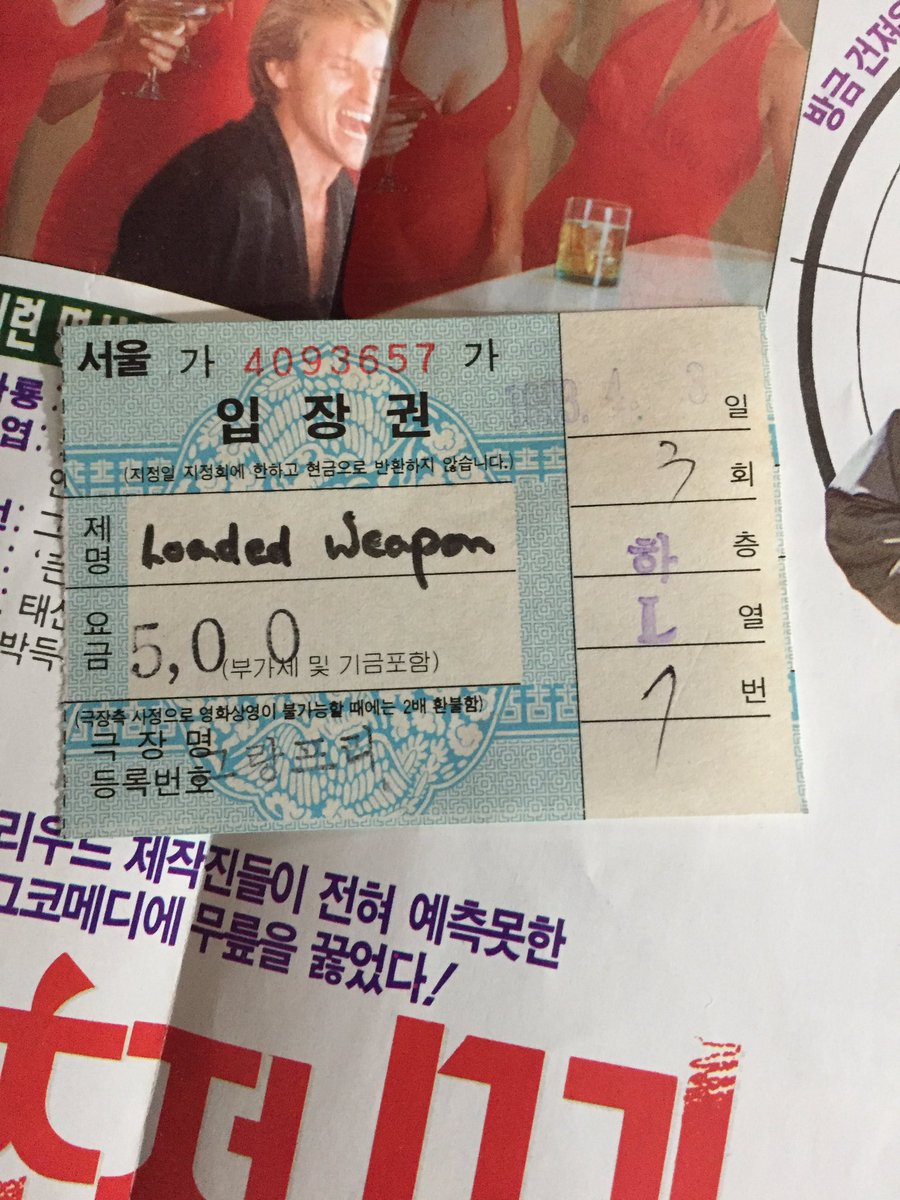 방금 건져
서울 가 4093657 가
입장권
(지정일 지정회에 한하고 현금으로 반환하지 않습니다.)
제명 Loaded Weapon
요금 5,00 (부가세 및 기금포함)
(극장측 사정으로 영화상영이 불가능할 때에는 2배 환불함)
극장명
등록번호
4. 3 일
3 회
하 층
L 열
7 번
태
박득
리우드 제작진들이 전혀 예측못한
그코메디에 무릎을 꿇었다!